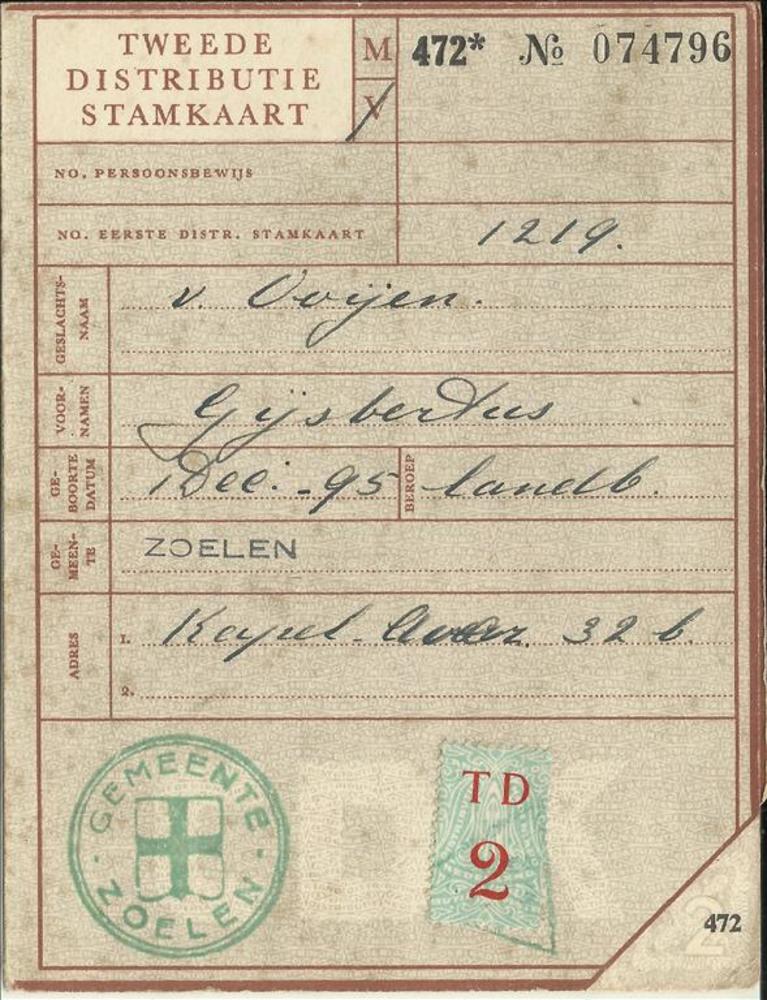 TWEEDE
DISTRIBUTIE
STAMKAART
M
V
472* № 074796
NO. PERSOONSBEWIJS
NO. EERSTE DISTR. STAMKAART 1219.
GESLACHTS-
NAAM
v. Ooijen.
VOOR-
NAMEN
Gijsbertus
GE-
BOORTE
DATUM
1 Dec. - 95
BEROEP
landb.
GE-
MEEN-
TE
ZOELEN
ADRES
1. Kapel- 32 b.
2.
GEMEENTE
ZOELEN
TD
2
472
2